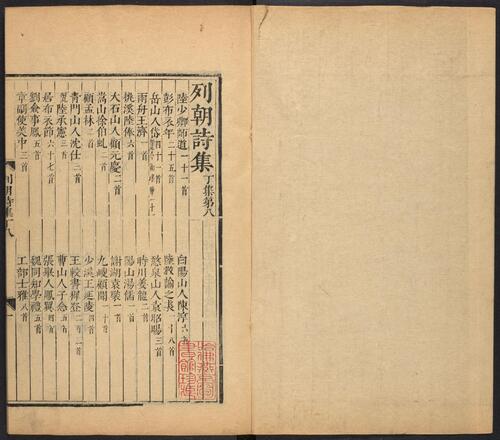 列朝詩集丁集第八
陸少卿師道一十一首
白陽山人陳淳六首
彭布衣年二十五首
陸教諭之長一十八首
岳山人岱四十一首
雨舟王濟一首
時川姜龍二首
桃溪陸俸六首
陽山湯儒一首
大石山人顧元慶二首
謝湖袁褧一首
嵩山徐伯虬二首
九嵕顧聞一十首
顧孟林二首
少溪王延陵四首
青門山人沈仕二首
王較書穉登二百一首
陸承憲三首
曹山人子念五首
居布衣節六十七首
張舉人鳳翼四首
劉僉事鳳五首
魏同知學禮五首
章副使美中三首
工部士雅八首
列朝詩集丁八
一